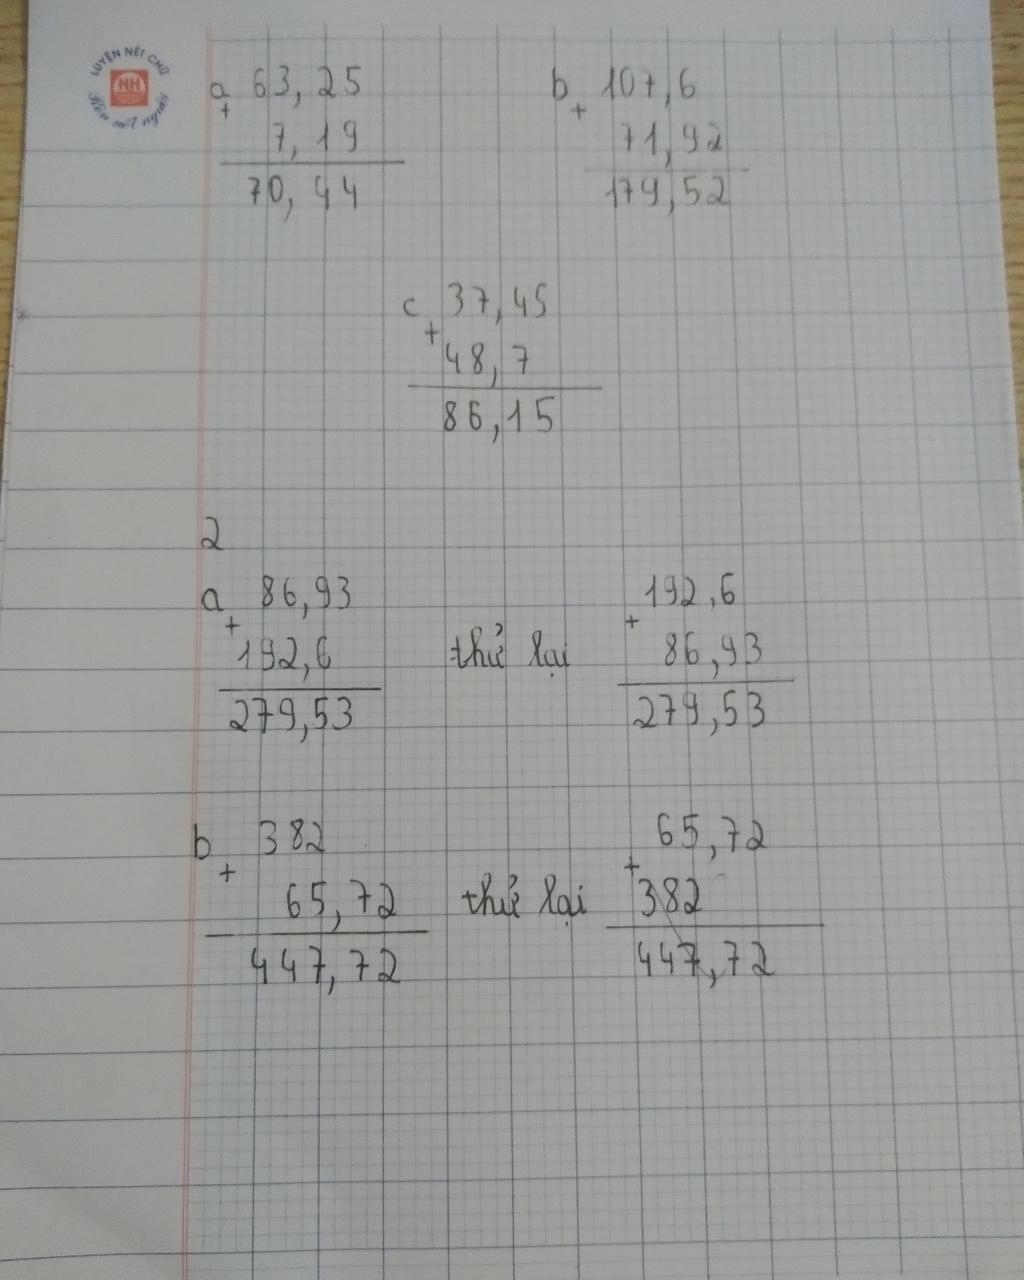 LUYỆN NÉT CHỮ
HH
Rèn nết người
a 63,25
+
7,19
70,44
b 107,6
+
71,92
179,52
c 37,45
+
48,7
86,15
2
a 86,93
+
192,6
279,53
thử lại
192,6
+
86,93
279,53
b 382
+
65,72
447,72
thử lại
65,72
+
382
447,72